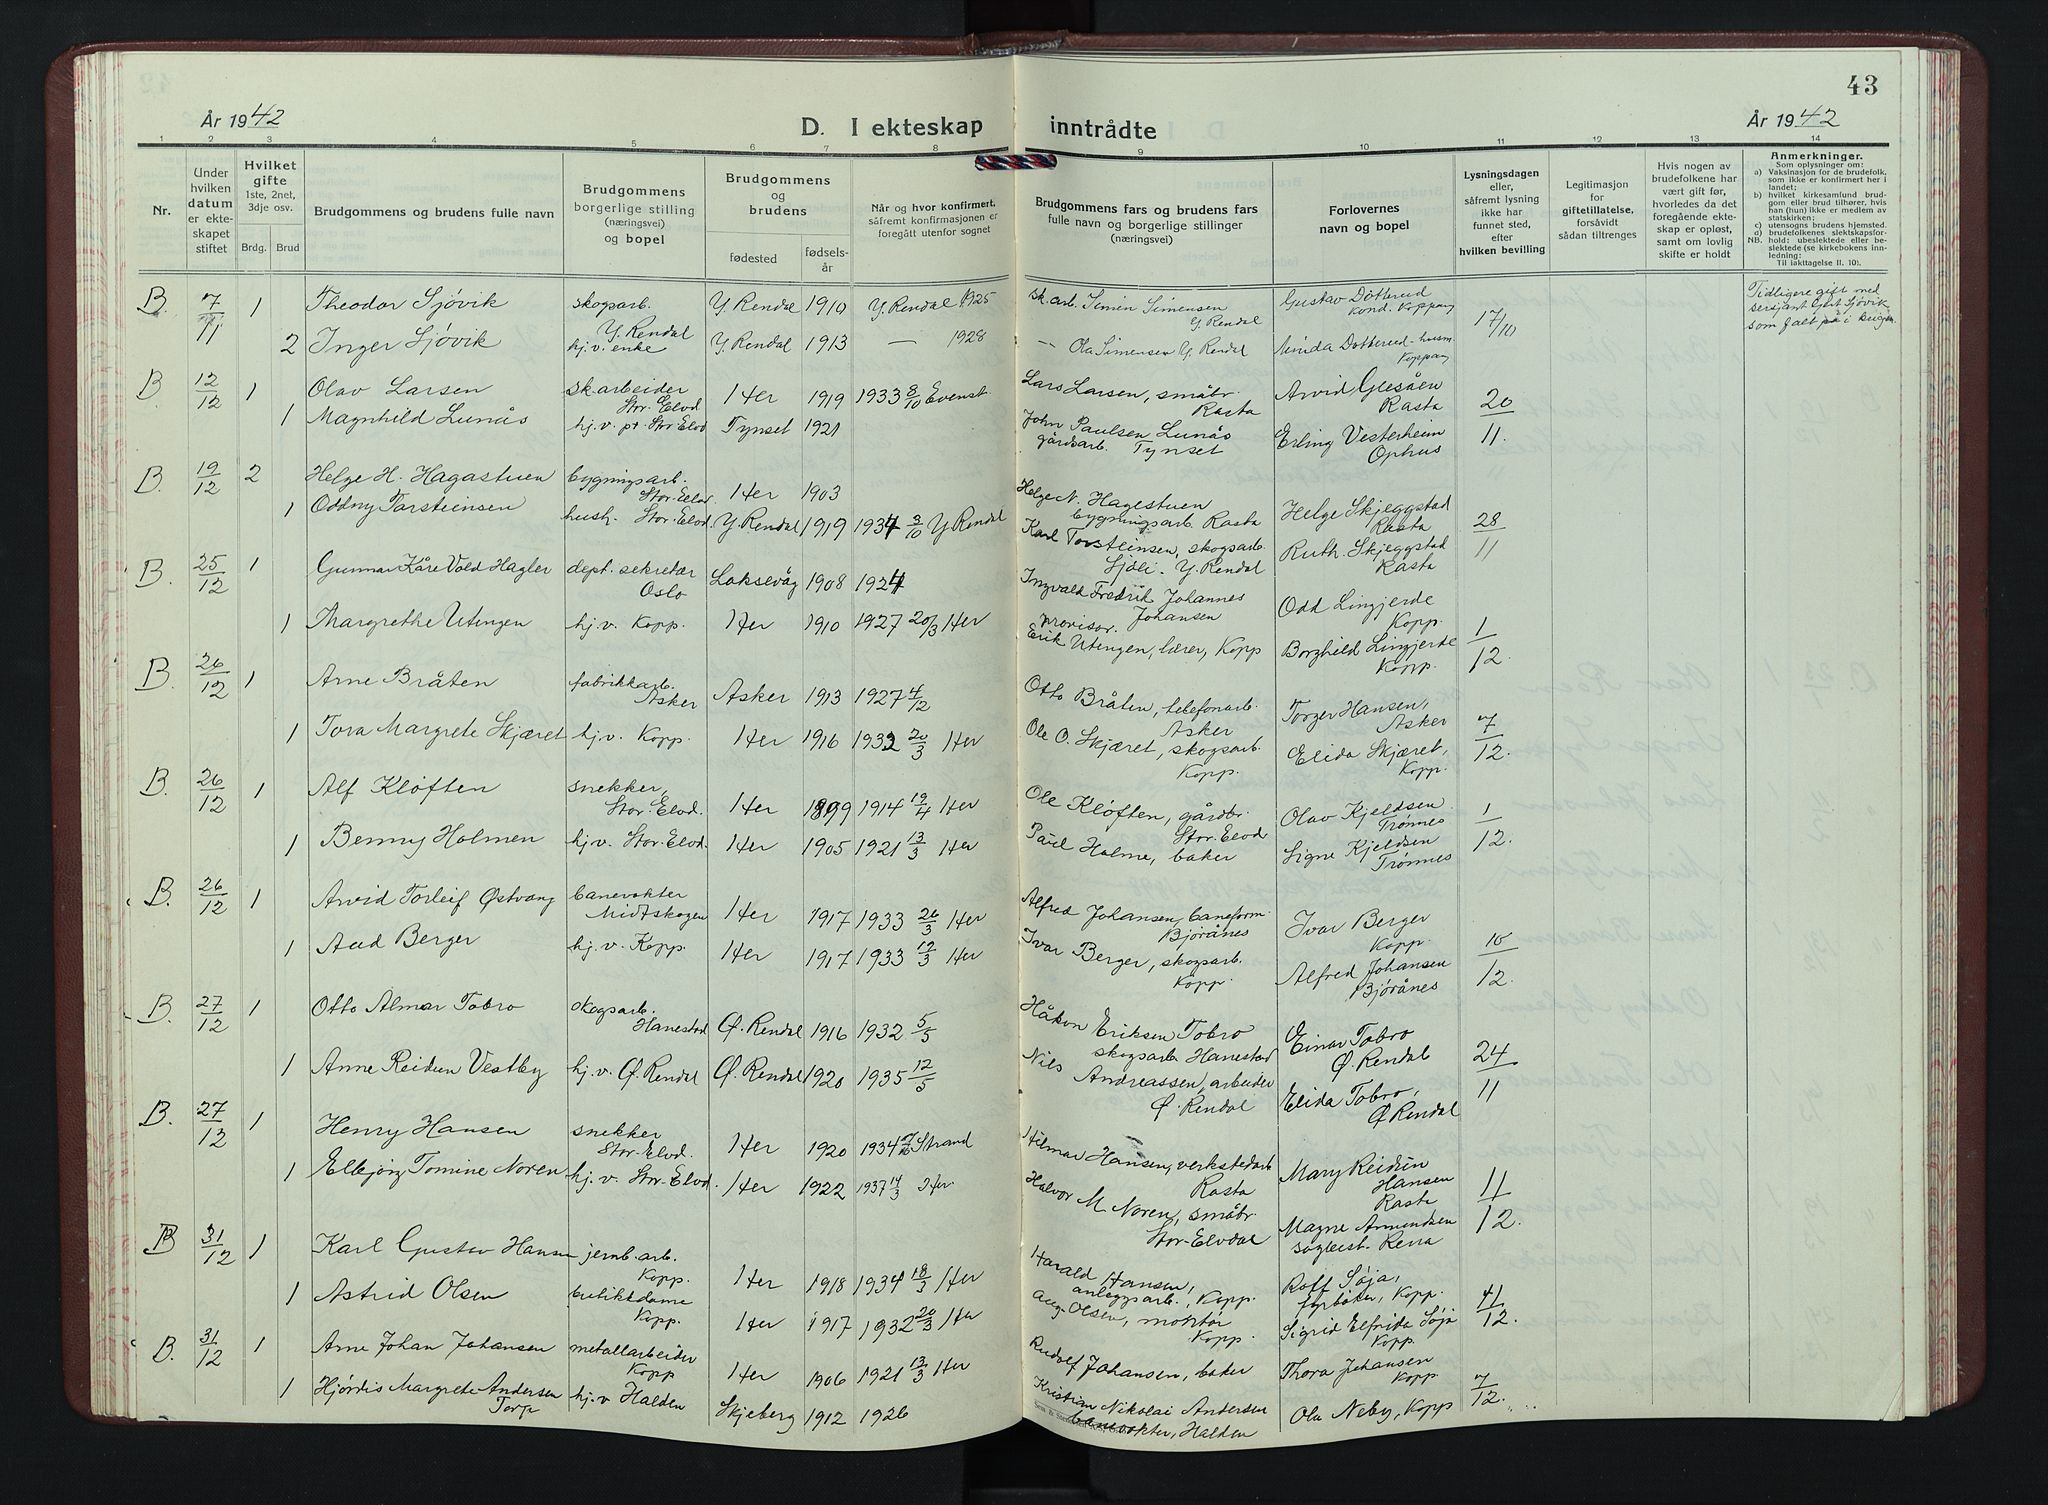 43
År 1942
D. I ekteskap inntrådte
År 1942
1 2 3 4 5 6 7 8 9 10 11 12 13 14
Nr.
Under hvilken datum er ekteskapet stiftet
Hvilket gifte 1ste, 2net, 3dje osv.
Brdg. Brud
Brudgommens og brudens fulle navn
Brudgommens borgerlige stilling (næringsvei) og bopel
Brudgommens og brudens
fødested
fødselsår
Når og hvor konfirmert, såfremt konfirmasjonen er foregått utenfor sognet
Brudgommens fars og brudens fars fulle navn og borgerlige stillinger (næringsvei)
Forlovernes navn og bopel
Lysningsdagen eller, såfremt lysning ikke har funnet sted, efter hvilken bevilling
Legitimasjon for giftetillatelse, forsåvidt sådan tiltrenges
Hvis nogen av brudefolkene har vært gift før, hvorledes da det foregående ekteskap er opløst, samt om lovlig skifte er holdt
Anmerkninger.
Som oplysninger om:
a) Vaksinasjon for de brudefolk, som ikke er konfirmert her i landet;
b) hvilket kirkesamfund brudgom eller brud tilhører, hvis han (hun) ikke er medlem av statskirken;
c) utensogns brudens hjemsted.
d) brudefolkenes slektskapsforhold: ubeslektede eller beslektede (se kirkebokens innledning:
NB. Til iakttagelse II. 10).
B. 7/11 1 Theodor Sjøvik skogsarb. Y. Rendal Y. Rendal 1910 Y. Rendal 1925 sk. arb. Simen Simensen Y. Rendal Gustav Dotterud kond. Koppang 17/10 Tidligere gift med sersjant Gert Sjøvik som falt på i krigen.
2 Inger Sjøvik hj. v. enke Y. Rendal 1913 — 1928 — Ola Simensen Y. Rendal Minda Dotterud - husm. Koppang
B 12/12 1 Olav Larsen sk. arbeider Stor. Elvd. Her 1919 1933 8/10 Evenst. Lars Larsen, småbr. Rasta Arvid Glesåen Rasta 20/11.
1 Magnhild Lunås hj. v. pt. Stor Elvd Tynset 1921 John Paulsen Lunås gårdsarb. Tynset Erling Vesterheim Ophus
B. 19/12 2 Helge H. Hagastuen bygningsarb. Stor. Elvd. Her 1903 Helge N. Hagestuen bygningsarb. Rasta Helge Skjeggstad Rasta 28/11
1 Oddny Torsteinsen hush. Stor. Elvd. Y. Rendal 1919 1934 3/10 Y Rendal Karl Torsteinsen, skogsarb. Sjøli - Y. Rendal Ruth Skjeggstad Rasta
B. 25/12 1 Gunnar Kåre Vold Hagler dept. sekretær Oslo Laksevåg 1908 1924 Ingvald Fredrik Johannes Johansen provisor. Odd Lingjerde Kopp. 1/12.
1 Margrethe Utengen hj. v. Kopp. Her 1910 1927 20/3 Her Erik Utengen, lærer, Kopp Borghild Lingjerde Kopp.
B. 26/12 1 Arne Bråten fabrikkarb. Asker Asker 1913 1927 4/12 Otto Bråten, telefonarb. Asker Torger Hansen, Asker 7/12.
1 Tora Margrete Skjæret hj. v. Kopp. Her 1916 1932 20/3 Her Ole O. Skjæret, skogsarb. Kopp. Elida Skjæret, Kopp.
B. 26/12 1 Alf Kløften snekker, Stor. Elvd. Her 1899 1914 19/4 Her Ole Kløften, gårdbr. Stor. Elvd Olav Kjeldsen Trønnes 1/12.
1 Benny Holmen hj. v. Stor. Elvd. Her 1905 1921 13/3 Her Paul Holme, baker Signe Kjeldsen Trønnes
B. 26/12 1 Arvid Torleif Østvang banevokter Midtskogen Her 1917 1933 26/3 Her Alfred Johansen, baneform. Bjørånes Ivar Berger Kopp. 15/12.
1 Aud Berger hj. v. Kopp. Her 1917 1933 12/3 Her Ivar Berger, skogsarb. Kopp. Alfred Johansen Bjørånes
B. 27/12 1 Otto Almar Tobro skogsarb. Hanestad Ø. Rendal 1916 1932 5/5 Håkon Eriksen Tobro skogsarb. Hanestad Einar Tobro Ø. Rendal 24/11
1 Anne Reidun Vestby hj. v. Ø. Rendal Ø. Rendal 1920 1935 12/5 Nils Andreassen, arbeider Ø. Rendal Elida Tobro, Ø Rendal
B. 27/12 1 Henry Hansen snekker Stor. Elvd. Her 1920 1934 Strand Hilmar Hansen, verkstedarb Rasta Mary Reidun Hansen Rasta 11/12.
1 Ellbjørg Tomine Noren hj. v. Stor. Elvd. Her 1922 1937 14/3 Her Halvor M Noren, småbr. Stor-Elvdal Magne Amundsen Rena
B 31/12 1 Karl Gustav Hansen jernb. arb. Kopp. Her 1918 1934 18/3 Her Harald Hansen, anleggsarb., Kopp. Rolf Søja, fyrbøter, Kopp. 41/12.
1 Astrid Olsen butikkdame Kopp. Her 1917 1932 20/3 Her Aug. Olsen, Kopp. Sigrid Elfrida Søja Kopp.
B. 31/12 1 Arne Johan Johansen metallarbeider Kopp Her 1906 1921 13/3 Her Rudolf Johansen, baker Thora Johansen Kopp. 7/12.
1 Hjørdis Margrete Andersen Torp hj. v. Halden Skjeberg 1912 1926 Kristian Nikolai Andersen banevokter, Halden Ola Neby, Kopp